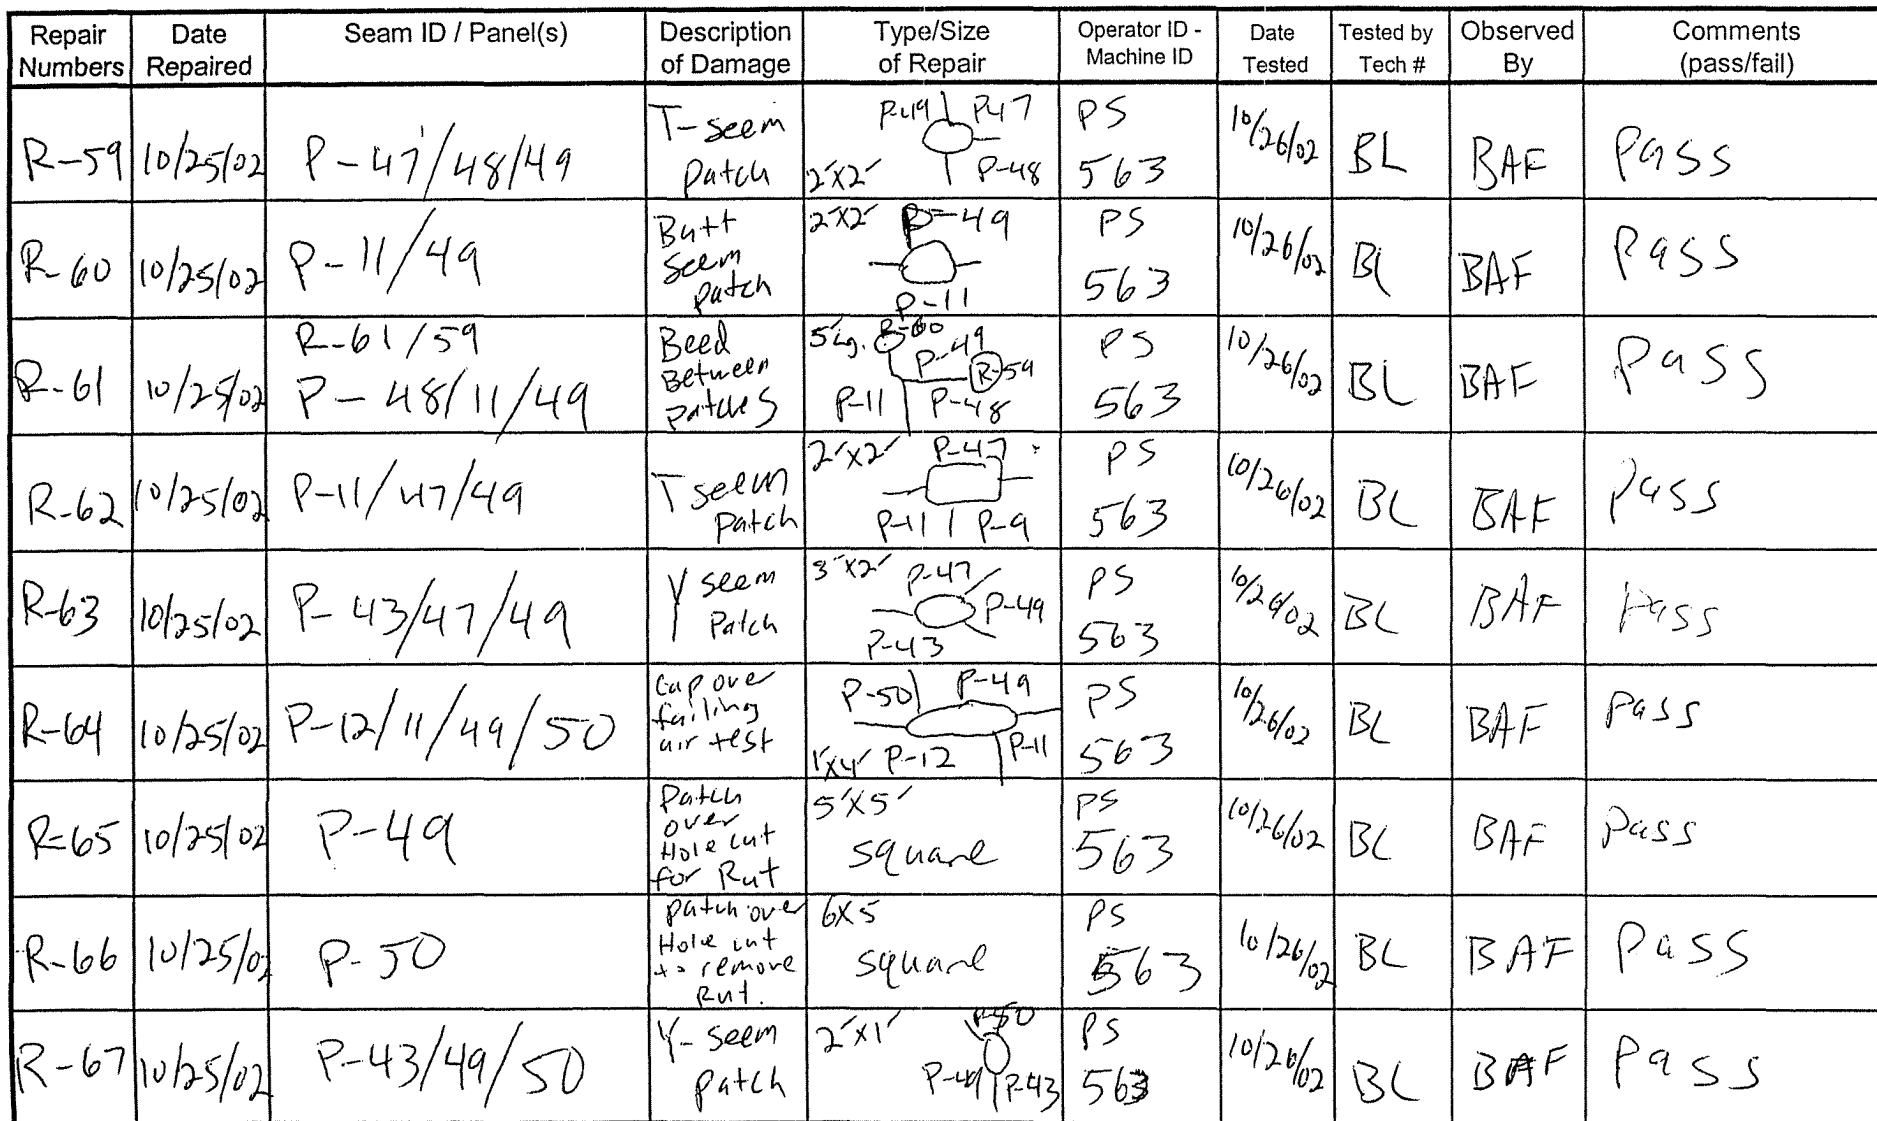 Repair Numbers | Date Repaired | Seam ID / Panel(s) | Description of Damage | Type/Size of Repair | Operator ID - Machine ID | Date Tested | Tested by Tech # | Observed By | Comments (pass/fail)
R-59 | 10/25/02 | P-47/48/49 | T-seem patch | P-49 P-47 2'x2' P-48 | PS 563 | 10/26/02 | BL | BAF | Pass
R-60 | 10/25/02 | P-11/49 | Butt seem patch | 2'x2' P-49 P-11 | PS 563 | 10/26/02 | BL | BAF | Pass
R-61 | 10/25/02 | R-61/59 P-48/11/49 | Beed Between patches | 5' Lg. R-60 P-49 R-59 P-11 P-48 | PS 563 | 10/26/02 | BL | BAF | Pass
R-62 | 10/25/02 | P-11/47/49 | T seem patch | 2'x2' P-47 P-11 P-9 | PS 563 | 10/26/02 | BL | BAF | Pass
R-63 | 10/25/02 | P-43/47/49 | Y seem Patch | 3'x2' P-47 P-49 P-43 | PS 563 | 10/26/02 | BL | BAF | Pass
R-64 | 10/25/02 | P-12/11/49/50 | Cap over failing air test | P-50 P-49 1'x4' P-12 P-11 | PS 563 | 10/26/02 | BL | BAF | Pass
R-65 | 10/25/02 | P-49 | Patch over Hole cut for Rut | 5'x5' square | PS 563 | 10/26/02 | BL | BAF | Pass
R-66 | 10/25/02 | P-50 | patch over Hole cut to remove Rut. | 6x5 square | PS 563 | 10/26/02 | BL | BAF | Pass
R-67 | 10/25/02 | P-43/49/50 | Y-seem patch | 2'x1' P-50 P-49 P-43 | PS 563 | 10/26/02 | BL | BAF | Pass